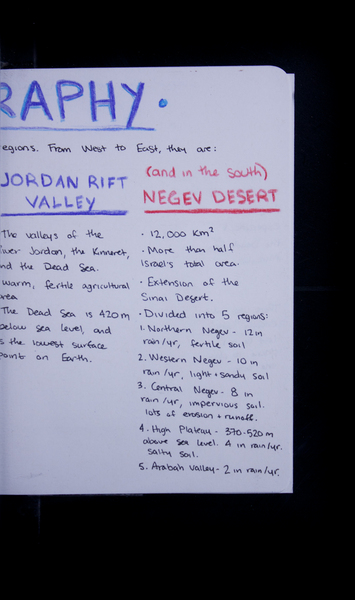 RAPHY.
egions. From West to East, they are:
JORDAN RIFT
VALLEY
The valleys of the
iver Jordan, the Kinneret,
nd the Dead Sea.
warm, fertile agricultural
area
The Dead Sea is 420m
below sea level, and
s the lowest surface
point on Earth.
(and in the south)
NEGEV DESERT
· 12,000 Km²
· More than half
Israel's total area.
· Extension of the
Sinai Desert.
· Divided into 5 regions:
1. Northern Negev - 12 in
rain/yr, fertile soil
2. Western Negev - 10 in
rain/yr, light + sandy soil
3. Central Negev - 8 in
rain/yr, impervious soil.
lots of erosion + runoff.
4. High Plateau - 370-520m
above sea level. 4 in rain/yr.
salty soil.
5. Arabah Valley - 2 in rain/yr.